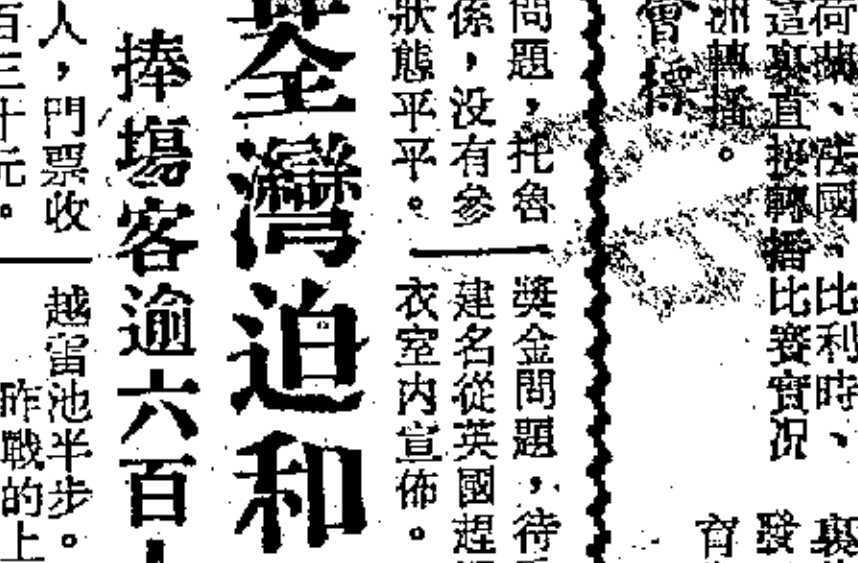 荷蘭、法國、比利時、
這裏直接轉播比賽實况
洲轉播。
裏
發
育
會標
問題，托魯
係，没有參
狀態平平。
獎金問題，待
建名從英國趕
衣室内宣佈。
荃灣迫和
捧塲客逾六百
人，門票收
百三十元。
越雷池半步。
昨戰的上